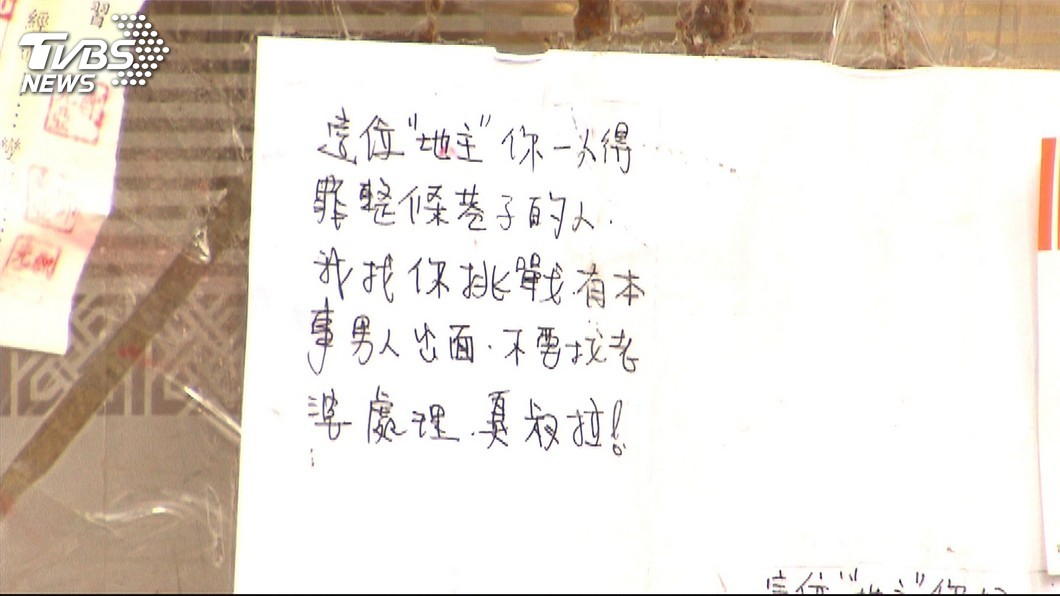 習
經
TVBS
NEWS
這位"地主"你一次得
罪整條巷子的人.
我找你挑戰.有本
事男人出面.不要找老
婆處理.真叔拉!
這位"地主"你